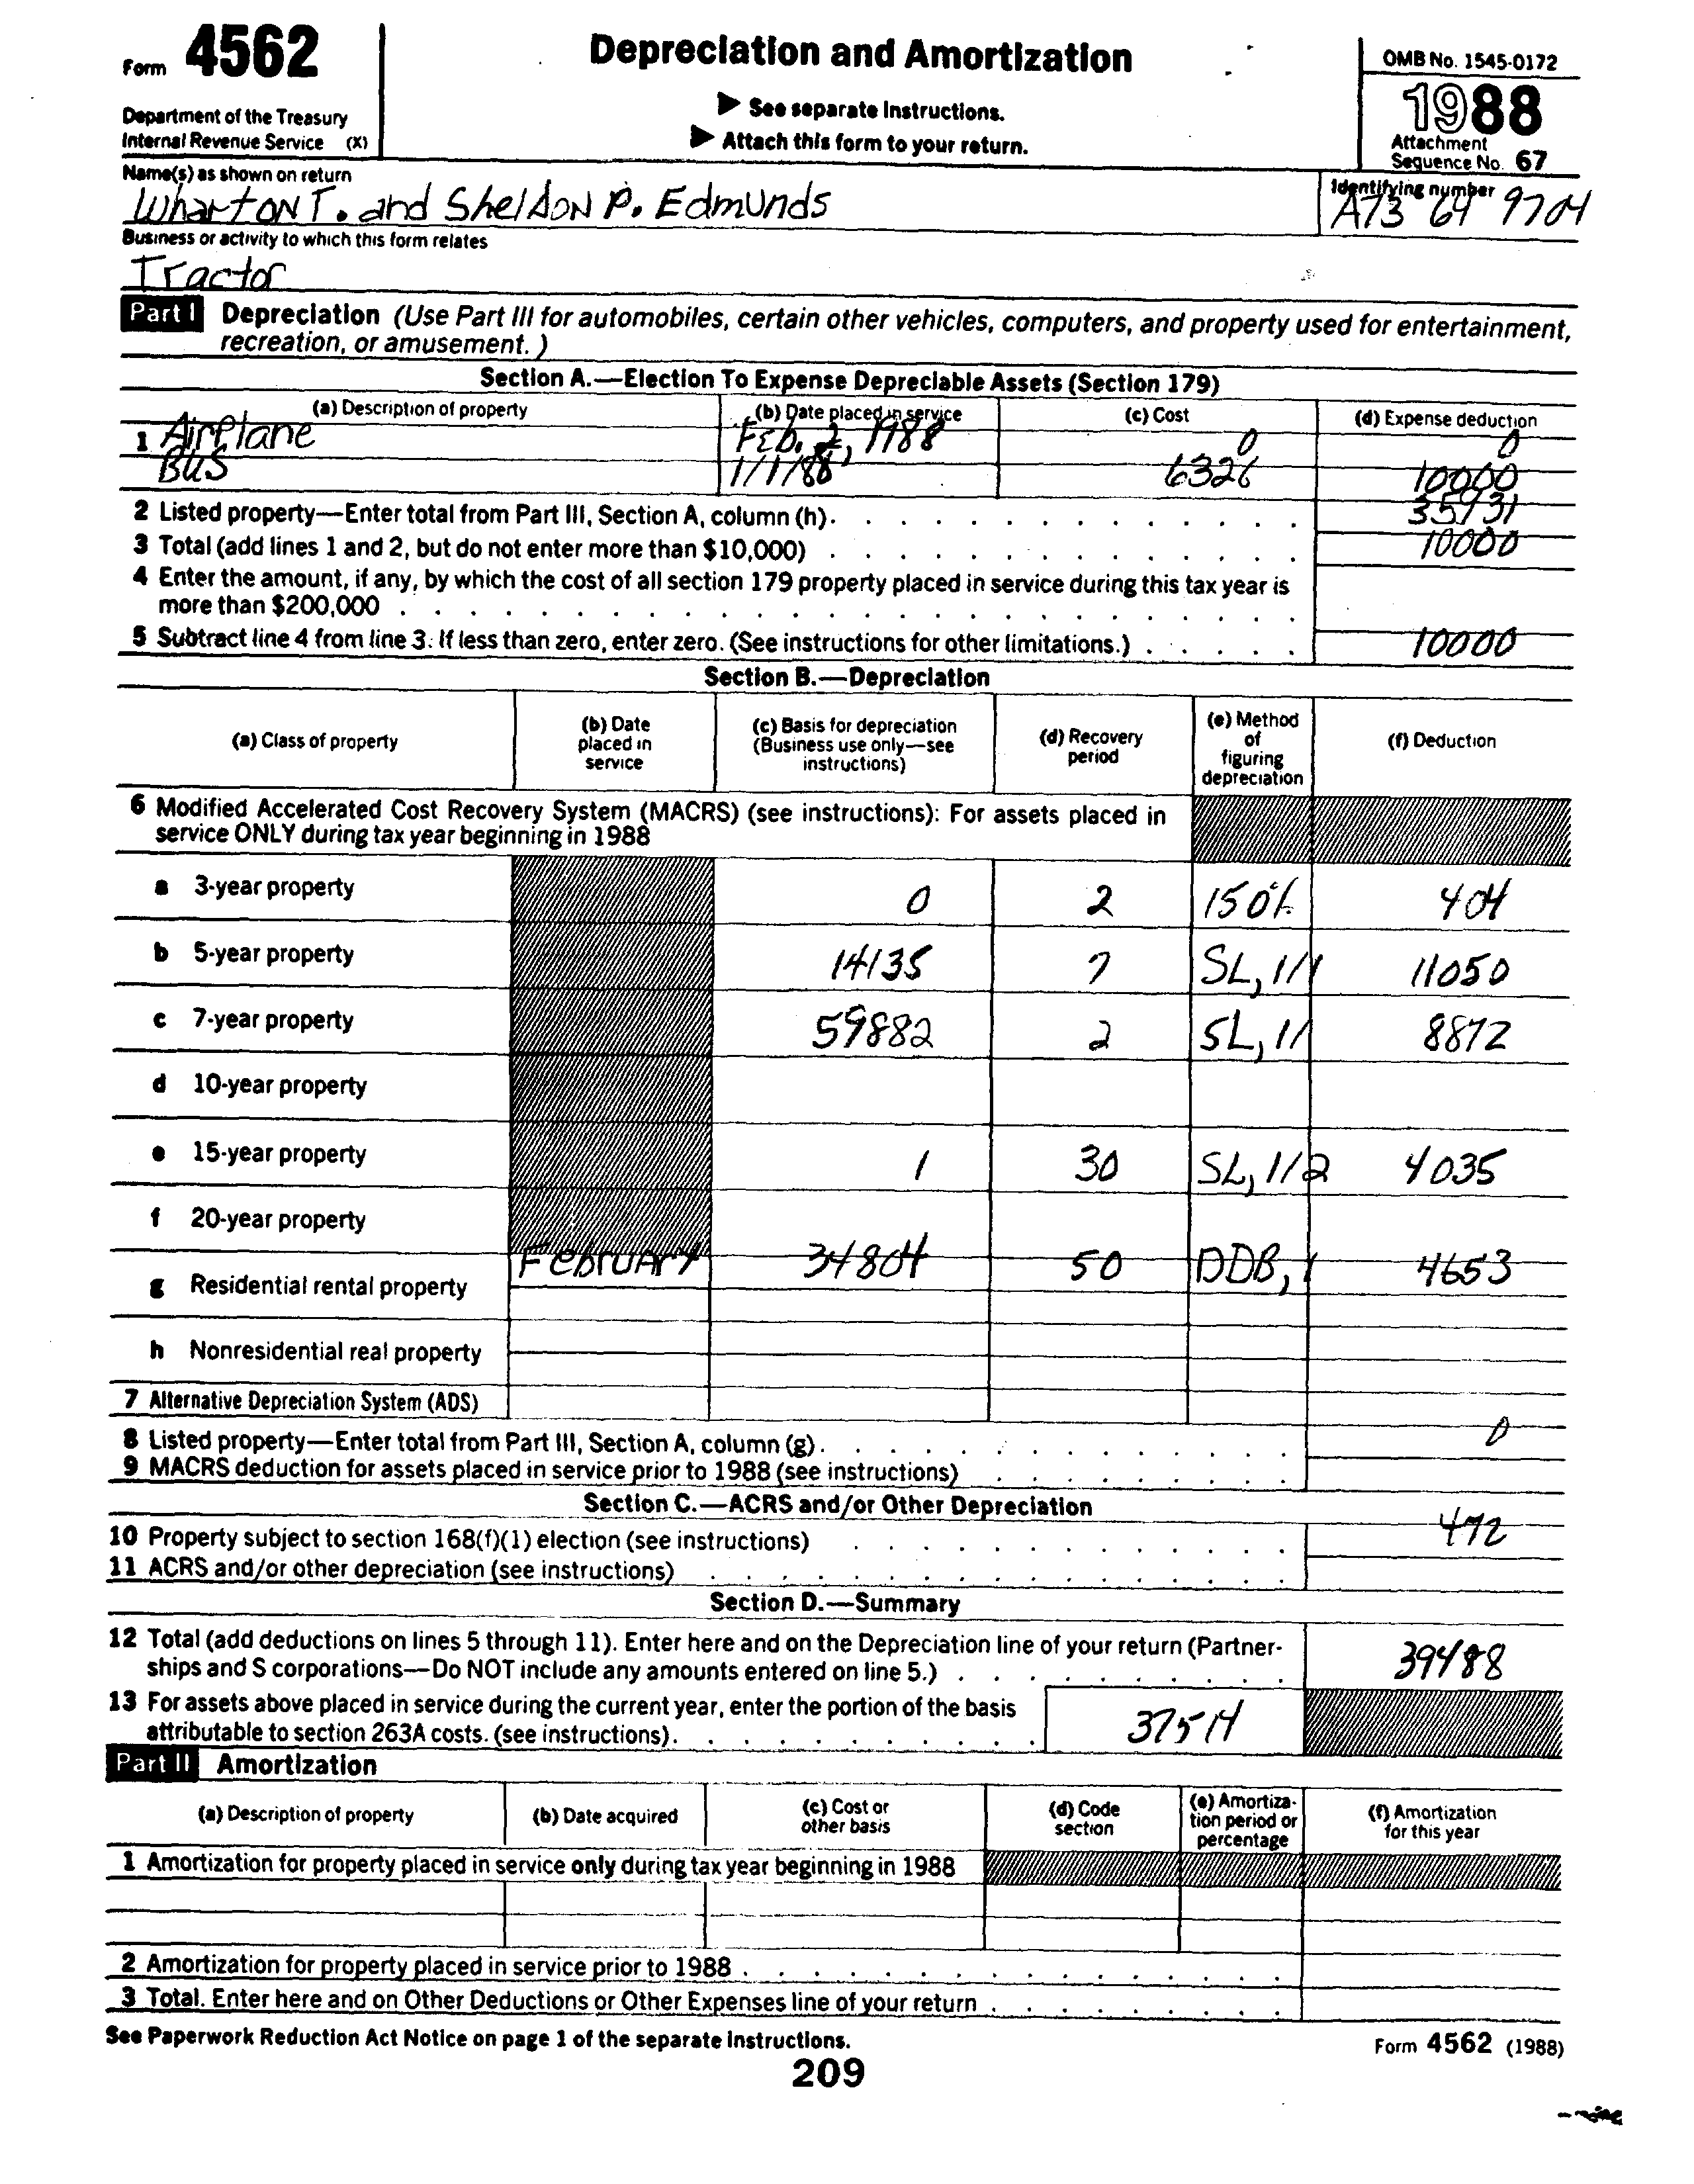 Form 4562
Depreciation and Amortization
OMB No. 1545-0172
▶ See separate Instructions.
▶ Attach this form to your return.
1988
Department of the Treasury
Internal Revenue Service (X)
Attachment
Sequence No. 67
Name(s) as shown on return
Identifying number
Wharton T. and Sheldon P. Edmunds
A73 64 9704
Business or activity to which this form relates
Tractor
Part I Depreciation (Use Part III for automobiles, certain other vehicles, computers, and property used for entertainment,
recreation, or amusement.)
Section A.—Election To Expense Depreciable Assets (Section 179)
(a) Description of property (b) Date placed in service (c) Cost (d) Expense deduction
1 Airplane Feb. 2, 1988 0 0
Bus 1/1/88 6326 10000
2 Listed property—Enter total from Part III, Section A, column (h). 35131
3 Total (add lines 1 and 2, but do not enter more than $10,000) 10000
4 Enter the amount, if any, by which the cost of all section 179 property placed in service during this tax year is
more than $200,000
5 Subtract line 4 from line 3. If less than zero, enter zero. (See instructions for other limitations.) 10000
Section B.—Depreciation
(a) Class of property (b) Date placed in service (c) Basis for depreciation (Business use only—see instructions) (d) Recovery period (e) Method of figuring depreciation (f) Deduction
6 Modified Accelerated Cost Recovery System (MACRS) (see instructions): For assets placed in
service ONLY during tax year beginning in 1988
a 3-year property 0 2 150% 404
b 5-year property 14135 7 SL, 1/1 11050
c 7-year property 59882 2 SL, 1/ 8872
d 10-year property
e 15-year property 1 30 SL, 1/2 4035
f 20-year property
February 34804 50 DDB, 1 4653
g Residential rental property
h Nonresidential real property
7 Alternative Depreciation System (ADS)
8 Listed property—Enter total from Part III, Section A, column (g). 0
9 MACRS deduction for assets placed in service prior to 1988 (see instructions)
Section C.—ACRS and/or Other Depreciation
10 Property subject to section 168(f)(1) election (see instructions) 472
11 ACRS and/or other depreciation (see instructions)
Section D.—Summary
12 Total (add deductions on lines 5 through 11). Enter here and on the Depreciation line of your return (Partner-
ships and S corporations—Do NOT include any amounts entered on line 5.) 39488
13 For assets above placed in service during the current year, enter the portion of the basis
attributable to section 263A costs. (see instructions). 37514
Part II Amortization
(a) Description of property (b) Date acquired (c) Cost or other basis (d) Code section (e) Amortiza-tion period or percentage (f) Amortization for this year
1 Amortization for property placed in service only during tax year beginning in 1988
2 Amortization for property placed in service prior to 1988
3 Total. Enter here and on Other Deductions or Other Expenses line of your return
See Paperwork Reduction Act Notice on page 1 of the separate Instructions.
Form 4562 (1988)
209